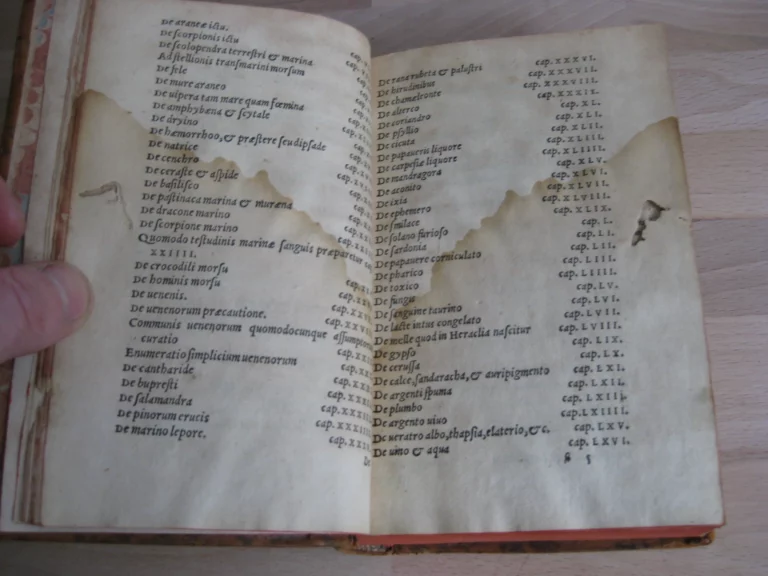 De araneæ ictu.
De scorpionis ictu
De scolopendra terrestri & marina
Ad stellionis transmarini morsum
De fele
De mure araneo
De uipera tam mare quam fœmina
De amphybæna & scytale
De dryino
De hæmorrhoo, & præstere seu dipsade
De natrice
De cenchro
De ceraste & aspide
De basilisco
De pastinaca marina & muræna
De dracone marino
De scorpione marino
Quomodo testudinis marinæ sanguis præparetur
XXIIII.
De crocodili morsu
De hominis morsu
De uenenis.
De uenenorum præcautione.
Communis uenenorum quomodocunque assumptorum
curatio
Enumeratio simplicium uenenorum
De cantharide
De bupresti
De salamandra
De pinorum erucis
De marino lepore.
De
De rana rubeta & palustri cap. XXXVI.
De hirudinibus cap. XXXVII.
De chamæleonte cap. XXXVIII.
De aberco cap. XXXIX.
De coriandro cap. XL.
De psyllio cap. XLI.
De cicuta cap. XLII.
De papaueris liquore cap. XLIII.
De carpesiæ liquore cap. XLIIII.
De mandragora cap. XLV.
De aconito cap. XLVI.
De ixia cap. XLVII.
De ephemero cap. XLVIII.
De smilace cap. XLIX.
De solano furioso cap. L.
De sardonia cap. LI.
De papauere corniculato cap. LII.
De pharico cap. LIII.
De toxico cap. LIIII.
De fungis cap. LV.
De sanguine taurino cap. LVI.
De lacte intus congelato cap. LVII.
De melle quod in Heraclia nascitur cap. LVIII.
De gypso cap. LIX.
De cerussa cap. LX.
De calce, sandaracha, & auripigmento cap. LXI.
De argenti spuma cap. LXII.
De plumbo cap. LXIII.
De argento uiuo cap. LXIIII.
De ueratro albo, thapsia, elaterio, &c. cap. LXV.
De uino & aqua cap. LXVI.